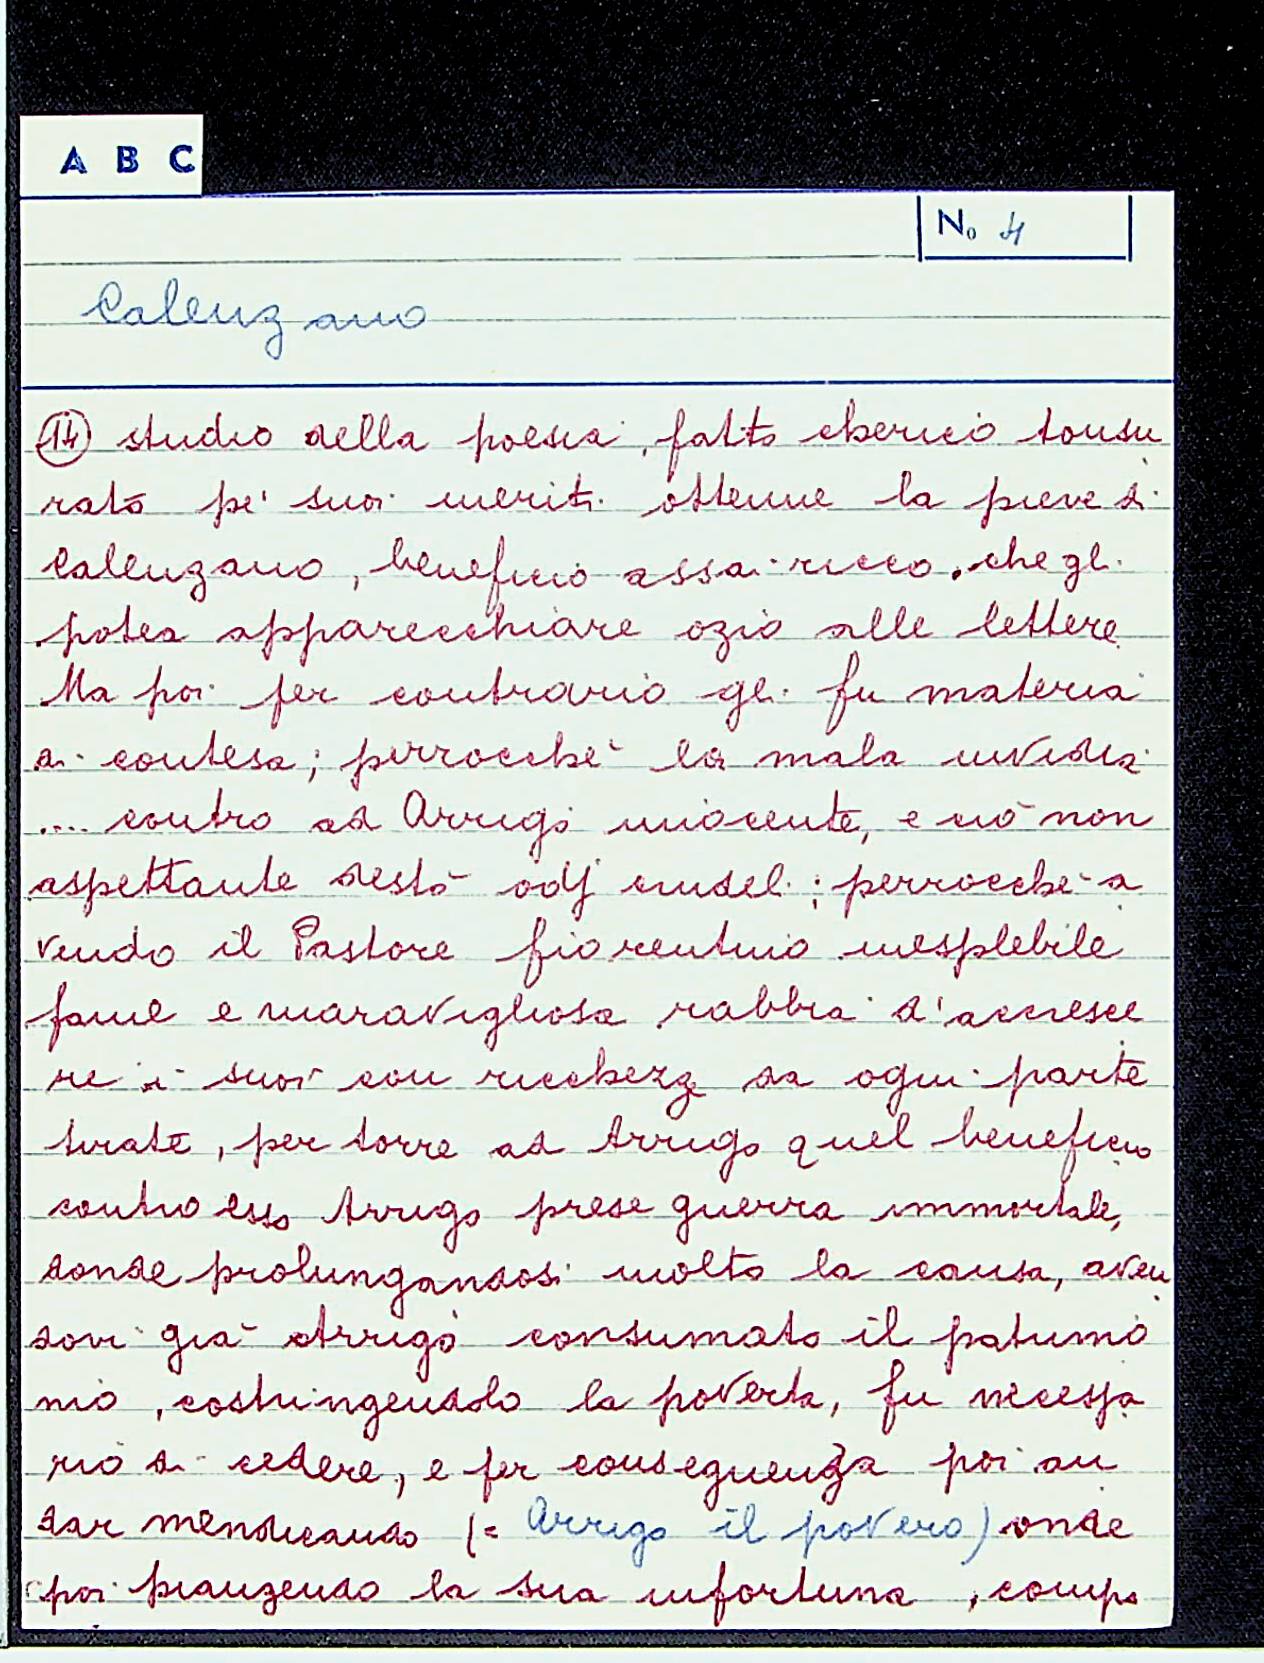 A B C
No 4
Calenzano
(14) studio della poesia, fatto cherico tonsu
rato pe' suoi meriti ottenne la pieve di
Calenzano, beneficio assai ricco, che gli
potea apparecchiare ozio alle lettere
Ma poi per contrario gli fu materia
di contesa; perrocché la mala invidia
.... contro ad Arrigo innocente, e ciò non
aspettante destò odj crudeli; perrocché a
vendo il Pastore fiorentino inesplebile
fame e maravigliosa rabbia d'accresce
re i suoi con ricchezz da ogni parte
tirate, per torre ad Arrigo quel beneficio
contro esso Arrigo prese guerra immortale,
donde prolungandosi molto la causa, aven
dovi già Arrigo consumato il patrimo
nio, costringendolo la povertà, fu necessa
rio di cedere, e per conseguenza poi an
dar mendicando (= Arrigo il povero) onde
poi piangendo la sua infortuna, compo